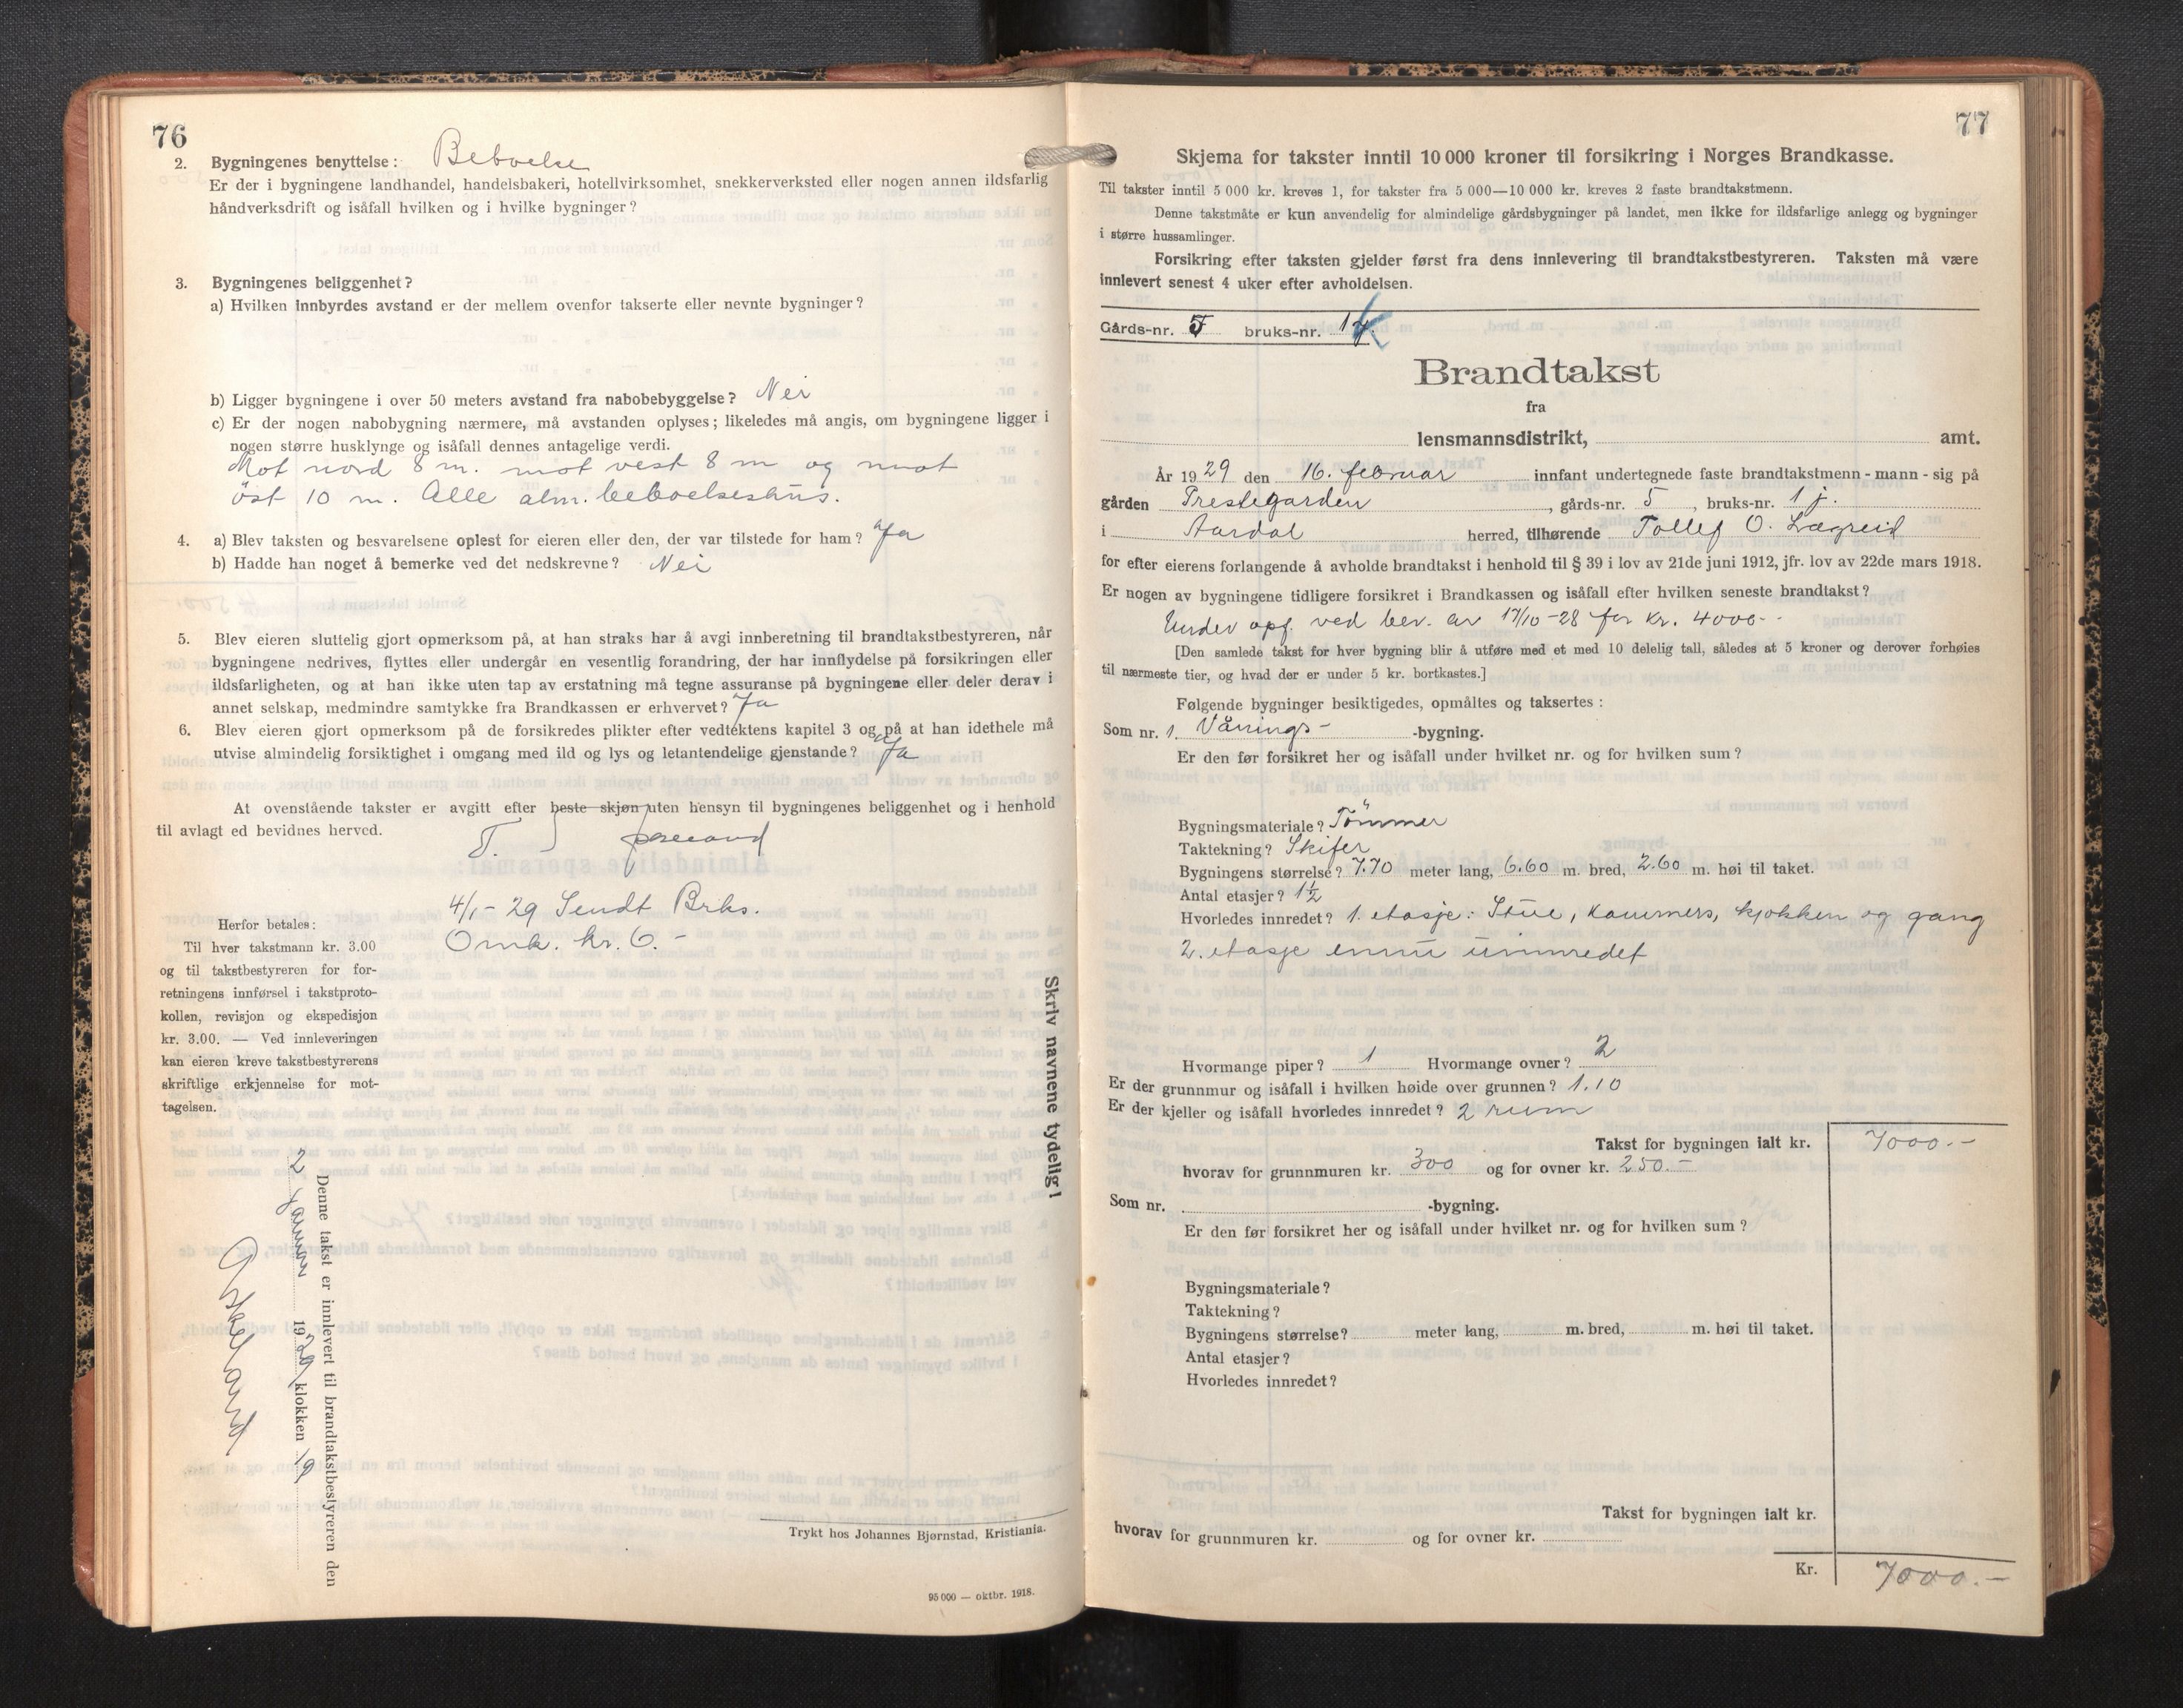 76
2. Bygningenes benyttelse: Beboelse
Er der i bygningene landhandel, handelsbakeri, hotellvirksomhet, snekkerverksted eller nogen annen ildsfarlig
håndverksdrift og isåfall hvilken og i hvilke bygninger?
3. Bygningenes beliggenhet?
a) Hvilken innbyrdes avstand er der mellem ovenfor takserte eller nevnte bygninger?
b) Ligger bygningene i over 50 meters avstand fra nabobebyggelse? Nei
c) Er der nogen nabobygning nærmere, må avstanden oplyses; likeledes må angis, om bygningene ligger i
nogen større husklynge og isåfall dennes antagelige verdi.
Mot nord 8 m. mot vest 8 m og mot
öst 10 m. Alle alm. beboelseshus.
4. a) Blev taksten og besvarelsene oplest for eieren eller den, der var tilstede for ham? Ja
b) Hadde han noget å bemerke ved det nedskrevne? Nei
5. Blev eieren sluttelig gjort opmerksom på, at han straks har å avgi innberetning til brandtakstbestyreren, når
bygningene nedrives, flyttes eller undergår en vesentlig forandring, der har innflydelse på forsikringen eller
ildsfarligheten, og at han ikke uten tap av erstatning må tegne assuranse på bygningene eller deler derav i
annet selskap, medmindre samtykke fra Brandkassen er erhvervet? Ja
6. Blev eieren gjort opmerksom på de forsikredes plikter efter vedtektens kapitel 3 og på at han idethele må
utvise almindelig forsiktighet i omgang med ild og lys og letantendelige gjenstande? Ja
At ovenstående takster er avgitt efter beste skjøn uten hensyn til bygningenes beliggenhet og i henhold
til avlagt ed bevidnes herved.
4/1-29 Sendt Brks.
Omk. kr. 6.-
Herfor betales:
Til hver takstmann kr. 3.00
og til takstbestyreren for for-
retningens innførsel i takstproto-
kollen, revisjon og ekspedisjon
kr. 3.00. — Ved innleveringen
kan eieren kreve takstbestyrerens
skriftlige erkjennelse for mot-
tagelsen.
Skriv navnene tydelig!
Denne takst er innlevert til brandtakstbestyreren den
2 januar 1929 klokken 19
Trykt hos Johannes Bjørnstad, Kristiania.
95 000 — oktbr. 1918.
77
Skjema for takster inntil 10 000 kroner til forsikring i Norges Brandkasse.
Til takster inntil 5 000 kr. kreves 1, for takster fra 5 000—10 000 kr. kreves 2 faste brandtakstmenn.
Denne takstmåte er kun anvendelig for almindelige gårdsbygninger på landet, men ikke for ildsfarlige anlegg og bygninger
i større hussamlinger.
Forsikring efter taksten gjelder først fra dens innlevering til brandtakstbestyreren. Taksten må være
innlevert senest 4 uker efter avholdelsen.
Gårds-nr. 5 bruks-nr. 1
Brandtakst
fra
lensmannsdistrikt, amt.
År 1929 den 16. februar innfant undertegnede faste brandtakstmenn - mann - sig på
gården Prestegarden, gårds-nr. 5, bruks-nr. 1 j.
i Aardal herred, tilhørende Tollef O. Lægreid
for efter eierens forlangende å avholde brandtakst i henhold til § 39 i lov av 21de juni 1912, jfr. lov av 22de mars 1918.
Er nogen av bygningene tidligere forsikret i Brandkassen og isåfall efter hvilken seneste brandtakst?
Under opf. ved bev. av 17/10-28 for kr. 4000.-
[Den samlede takst for hver bygning blir å utføre med et med 10 delelig tall, således at 5 kroner og derover forhøies
til nærmeste tier, og hvad der er under 5 kr. bortkastes.]
Følgende bygninger besiktigedes, opmåltes og taksertes:
Som nr. 1. Vånings- -bygning.
Er den før forsikret her og isåfall under hvilket nr. og for hvilken sum?
Bygningsmateriale? Tömmer
Taktekning? Skifer
Bygningens størrelse? 7.70 meter lang, 6.60 m. bred, 2.60 m. høi til taket.
Antal etasjer? 1½
Hvorledes innredet? 1. etasje: Stue, kammers, kjøkken og gang
2. etasje ennu uinnredet
Hvormange piper? 1 Hvormange ovner? 2
Er der grunnmur og isåfall i hvilken høide over grunnen? 1.10
Er der kjeller og isåfall hvorledes innredet? 2 rum
Takst for bygningen ialt kr. 7000.-
hvorav for grunnmuren kr. 300 og for ovner kr. 250.-
Som nr. -bygning.
Er den før forsikret her og isåfall under hvilket nr. og for hvilken sum?
Bygningsmateriale?
Taktekning?
Bygningens størrelse? meter lang, m. bred, m. høi til taket.
Antal etasjer?
Hvorledes innredet?
Takst for bygningen ialt kr.
hvorav for grunnmuren kr. og for ovner kr.
Kr. 7000.-